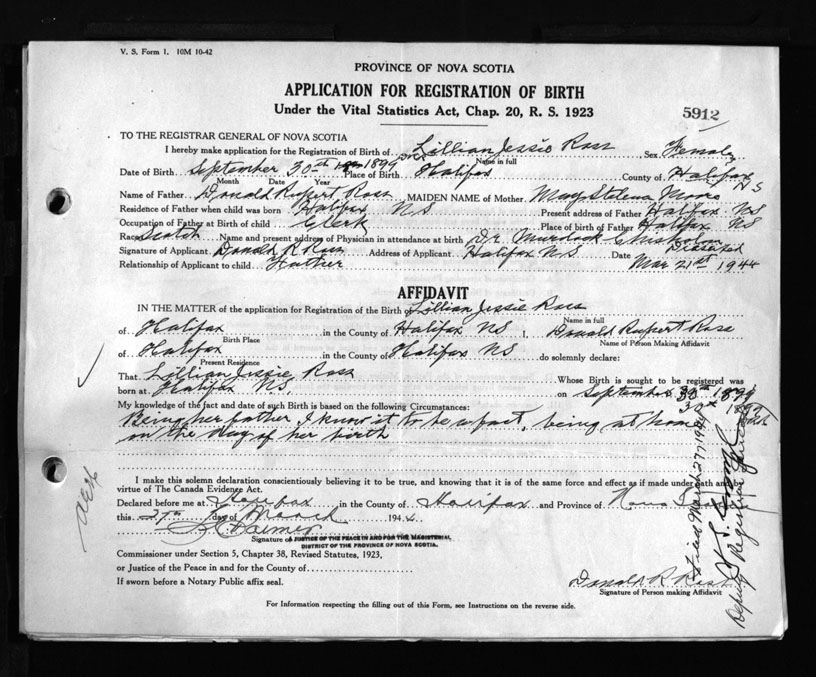 V. S. Form 1. 10M 10-42
PROVINCE OF NOVA SCOTIA
APPLICATION FOR REGISTRATION OF BIRTH
Under the Vital Statistics Act, Chap. 20, R. S. 1923
5912
TO THE REGISTRAR GENERAL OF NOVA SCOTIA
I hereby make application for the Registration of Birth of Lillian Jessie Ross Sex Female
Name in full
Date of Birth September 30th 1899 Place of Birth Halifax County of Halifax NS
Month Date Year
Name of Father Donald Rupert Ross MAIDEN NAME of Mother May
Residence of Father when child was born Halifax NS Present address of Father Halifax NS
Occupation of Father at Birth of child Clerk Place of birth of Father Halifax NS
Race Scotch Name and present address of Physician in attendance at birth Dr. Murdock Chisholm Deceased
Signature of Applicant Donald R Ross Address of Applicant Halifax NS Date Mar 21st 1944
Relationship of Applicant to child Father
AFFIDAVIT
IN THE MATTER of the application for Registration of the Birth of Lillian Jessie Ross
Name in full
of Halifax in the County of Halifax NS I, Donald Rupert Ross
Birth Place Name of Person Making Affidavit
of Halifax in the County of Halifax NS do solemnly declare:
Present Residence
That Lillian Jessie Ross Whose Birth is sought to be registered was
born at Halifax NS. on September 30th 1899
30th 1899
My knowledge of the fact and date of such Birth is based on the following Circumstances:
Being her father, I know it to be a fact, being at home
on the day of her birth
I make this solemn declaration conscientiously believing it to be true, and knowing that it is of the same force and effect as if made under oath and by
virtue of The Canada Evidence Act.
Declared before me at Halifax in the County of Halifax and Province of Nova Scotia
this 27th day of March 1944
Signature of A JUSTICE OF THE PEACE IN AND FOR THE MAGISTERIAL
DISTRICT OF THE PROVINCE OF NOVA SCOTIA.
Commissioner under Section 5, Chapter 38, Revised Statutes, 1923,
or Justice of the Peace in and for the County of
If sworn before a Notary Public affix seal.
Donald R Ross
Signature of Person making Affidavit
For Information respecting the filling out of this Form, see Instructions on the reverse side.
Filed March 27 1944
Deputy Registrar General